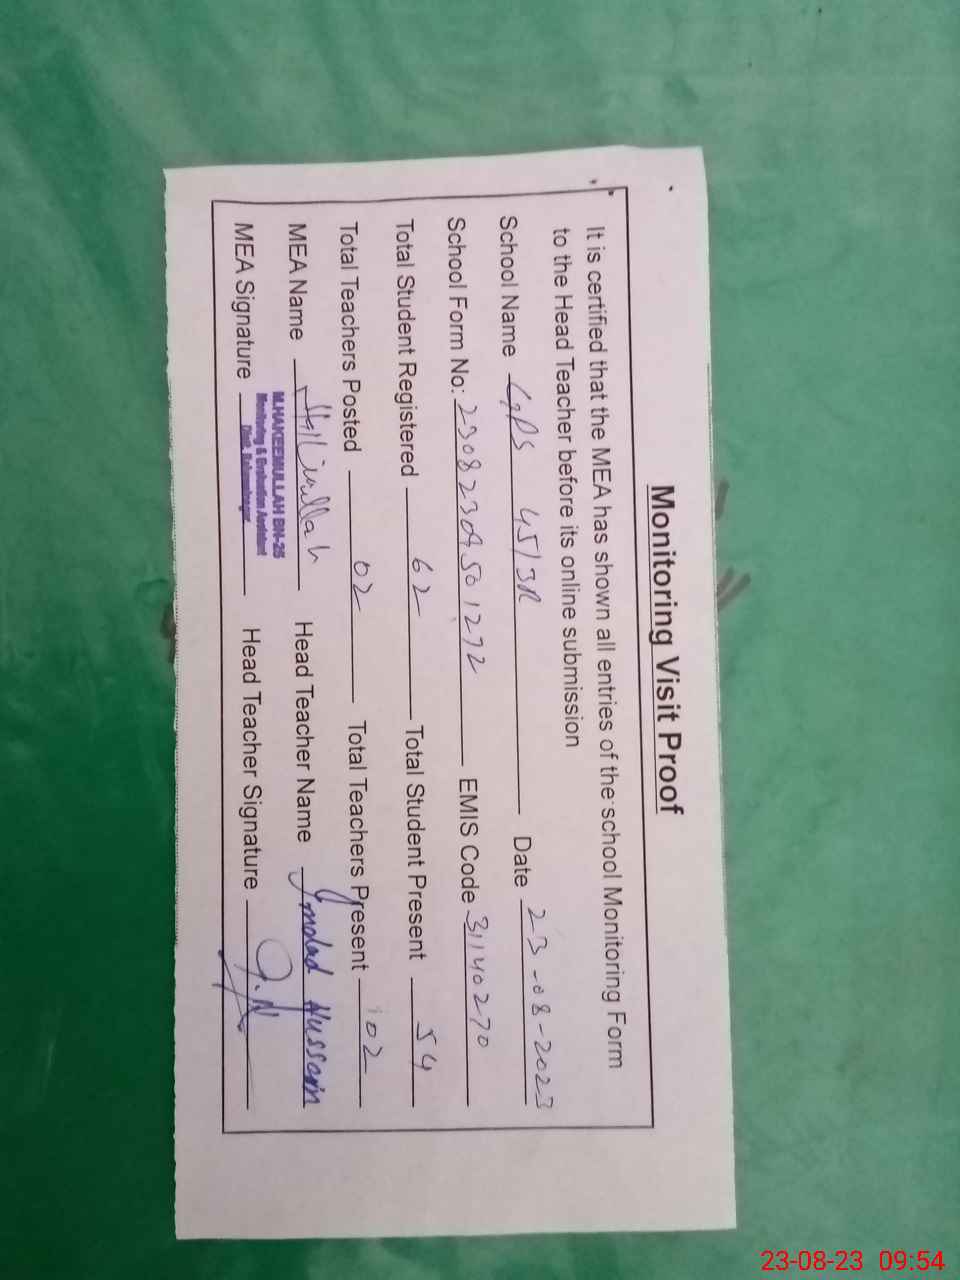 Monitoring Visit Proof
It is certified that the MEA has shown all entries of the school Monitoring Form
to the Head Teacher before its online submission
School Name GPS 45/3R Date 23-08-2023
School Form No: EMIS Code 31140270
Total Student Registered 62 Total Student Present 54
Total Teachers Posted 02 Total Teachers Present 02
MEA Name Head Teacher Name Imdad Hussain
MEA Signature Head Teacher Signature
M.HAKEEMULLAH BN-25
Monitoring & Evaluation Assistant
Distt. Bahawalnagar
23-08-23 09:54